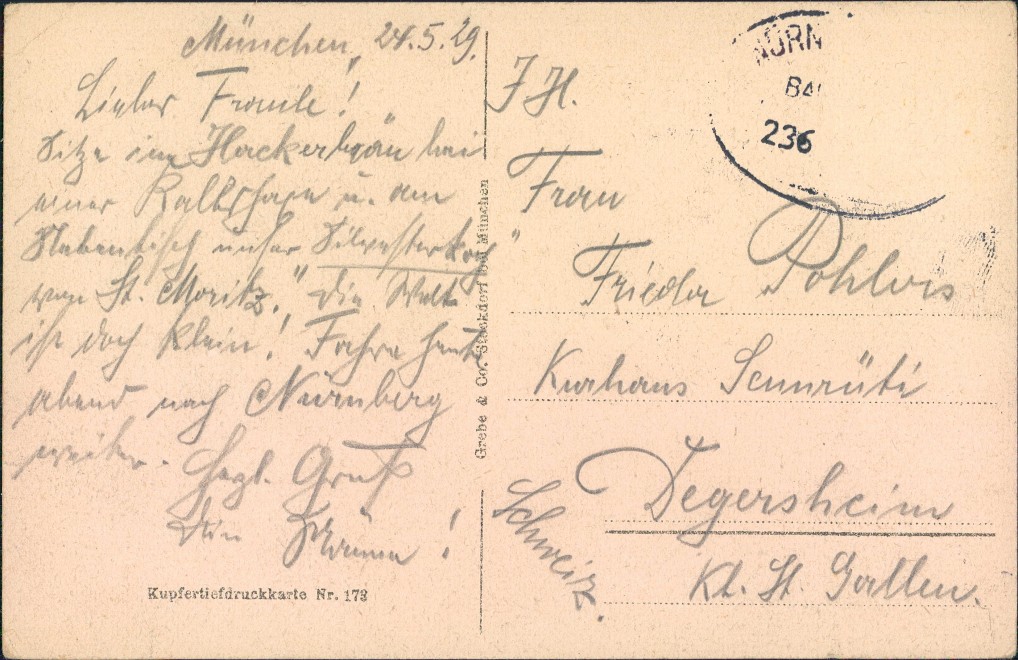 München, 24.5.29.
Liebes Fraule!
Sitze im Hackerbräu bei
einer Kalbshaxe u. am
Nebentisch unser "Silvesterkoch
von St. Moritz." Die Welt
ist doch klein! Fahre heute
abend nach Nürnberg
weiter. Hgzl. Gruß
Dein
Kupfertiefdruckkarte Nr. 173
Grebe & Co. Stockdorf bei München
NÜRN
BA
236
I H.
Frau
Frieder Pohlers
Kurhaus Sennrüti
Degersheim
Kt. St. Gallen.
Schweiz.